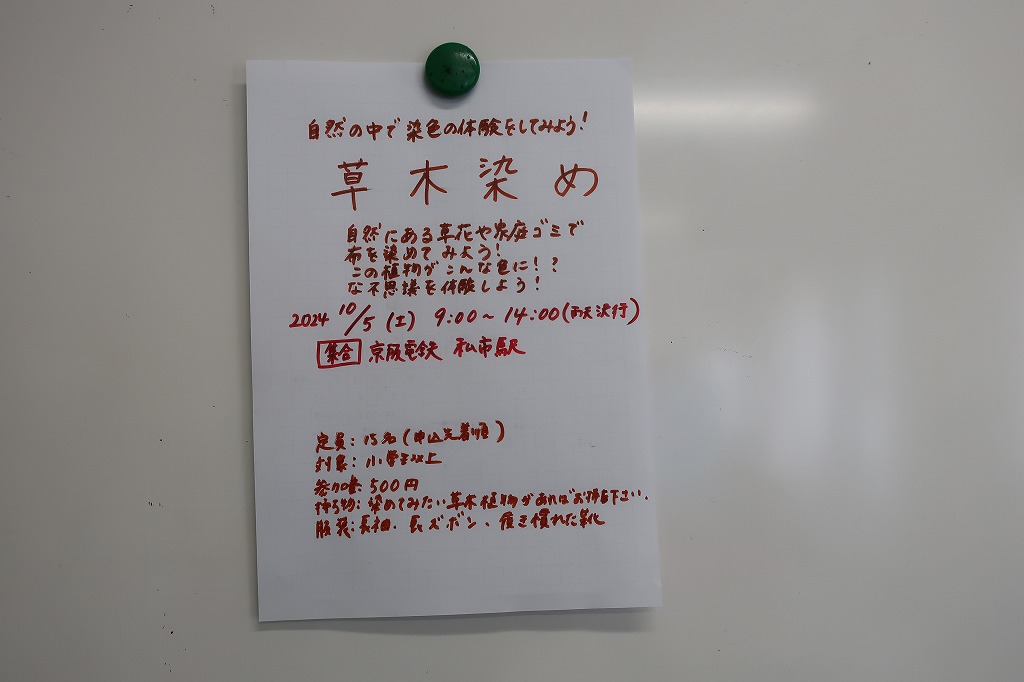 自然の中で染色の体験をしてみよう!
草木染め
自然にある草花や家庭ゴミで
布を染めてみよう!
この植物がこんな色に!?
な不思議を体験しよう!
2024 10/5 (土) 9:00~14:00(雨天決行)
集合 京阪電鉄 私市駅
定員:15名(申込先着順)
対象:小学生以上
参加費:500円
持ち物:染めてみたい草木植物があればお持ち下さい.
服装:長袖、長ズボン、履き慣れた靴